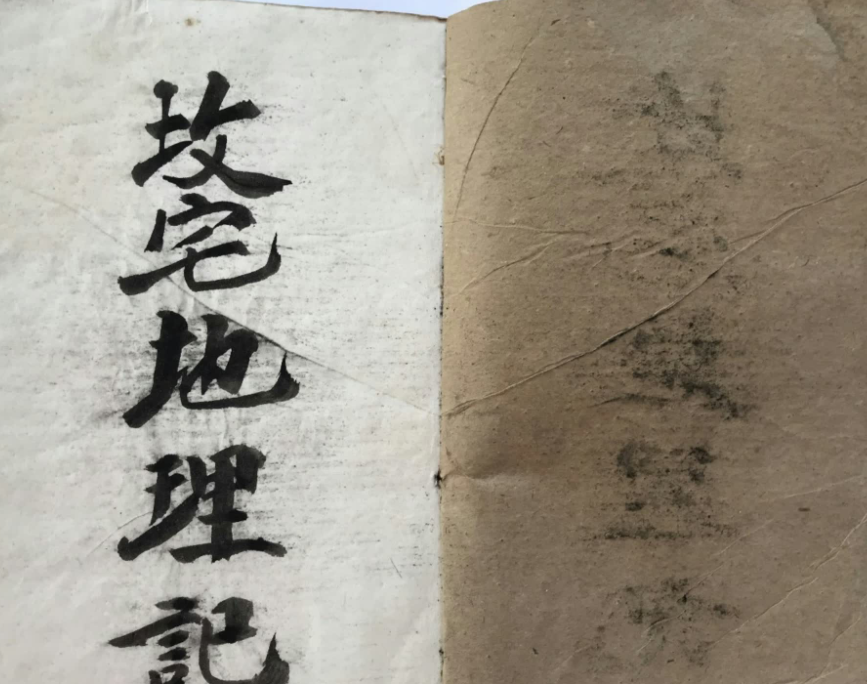 坟宅地理記